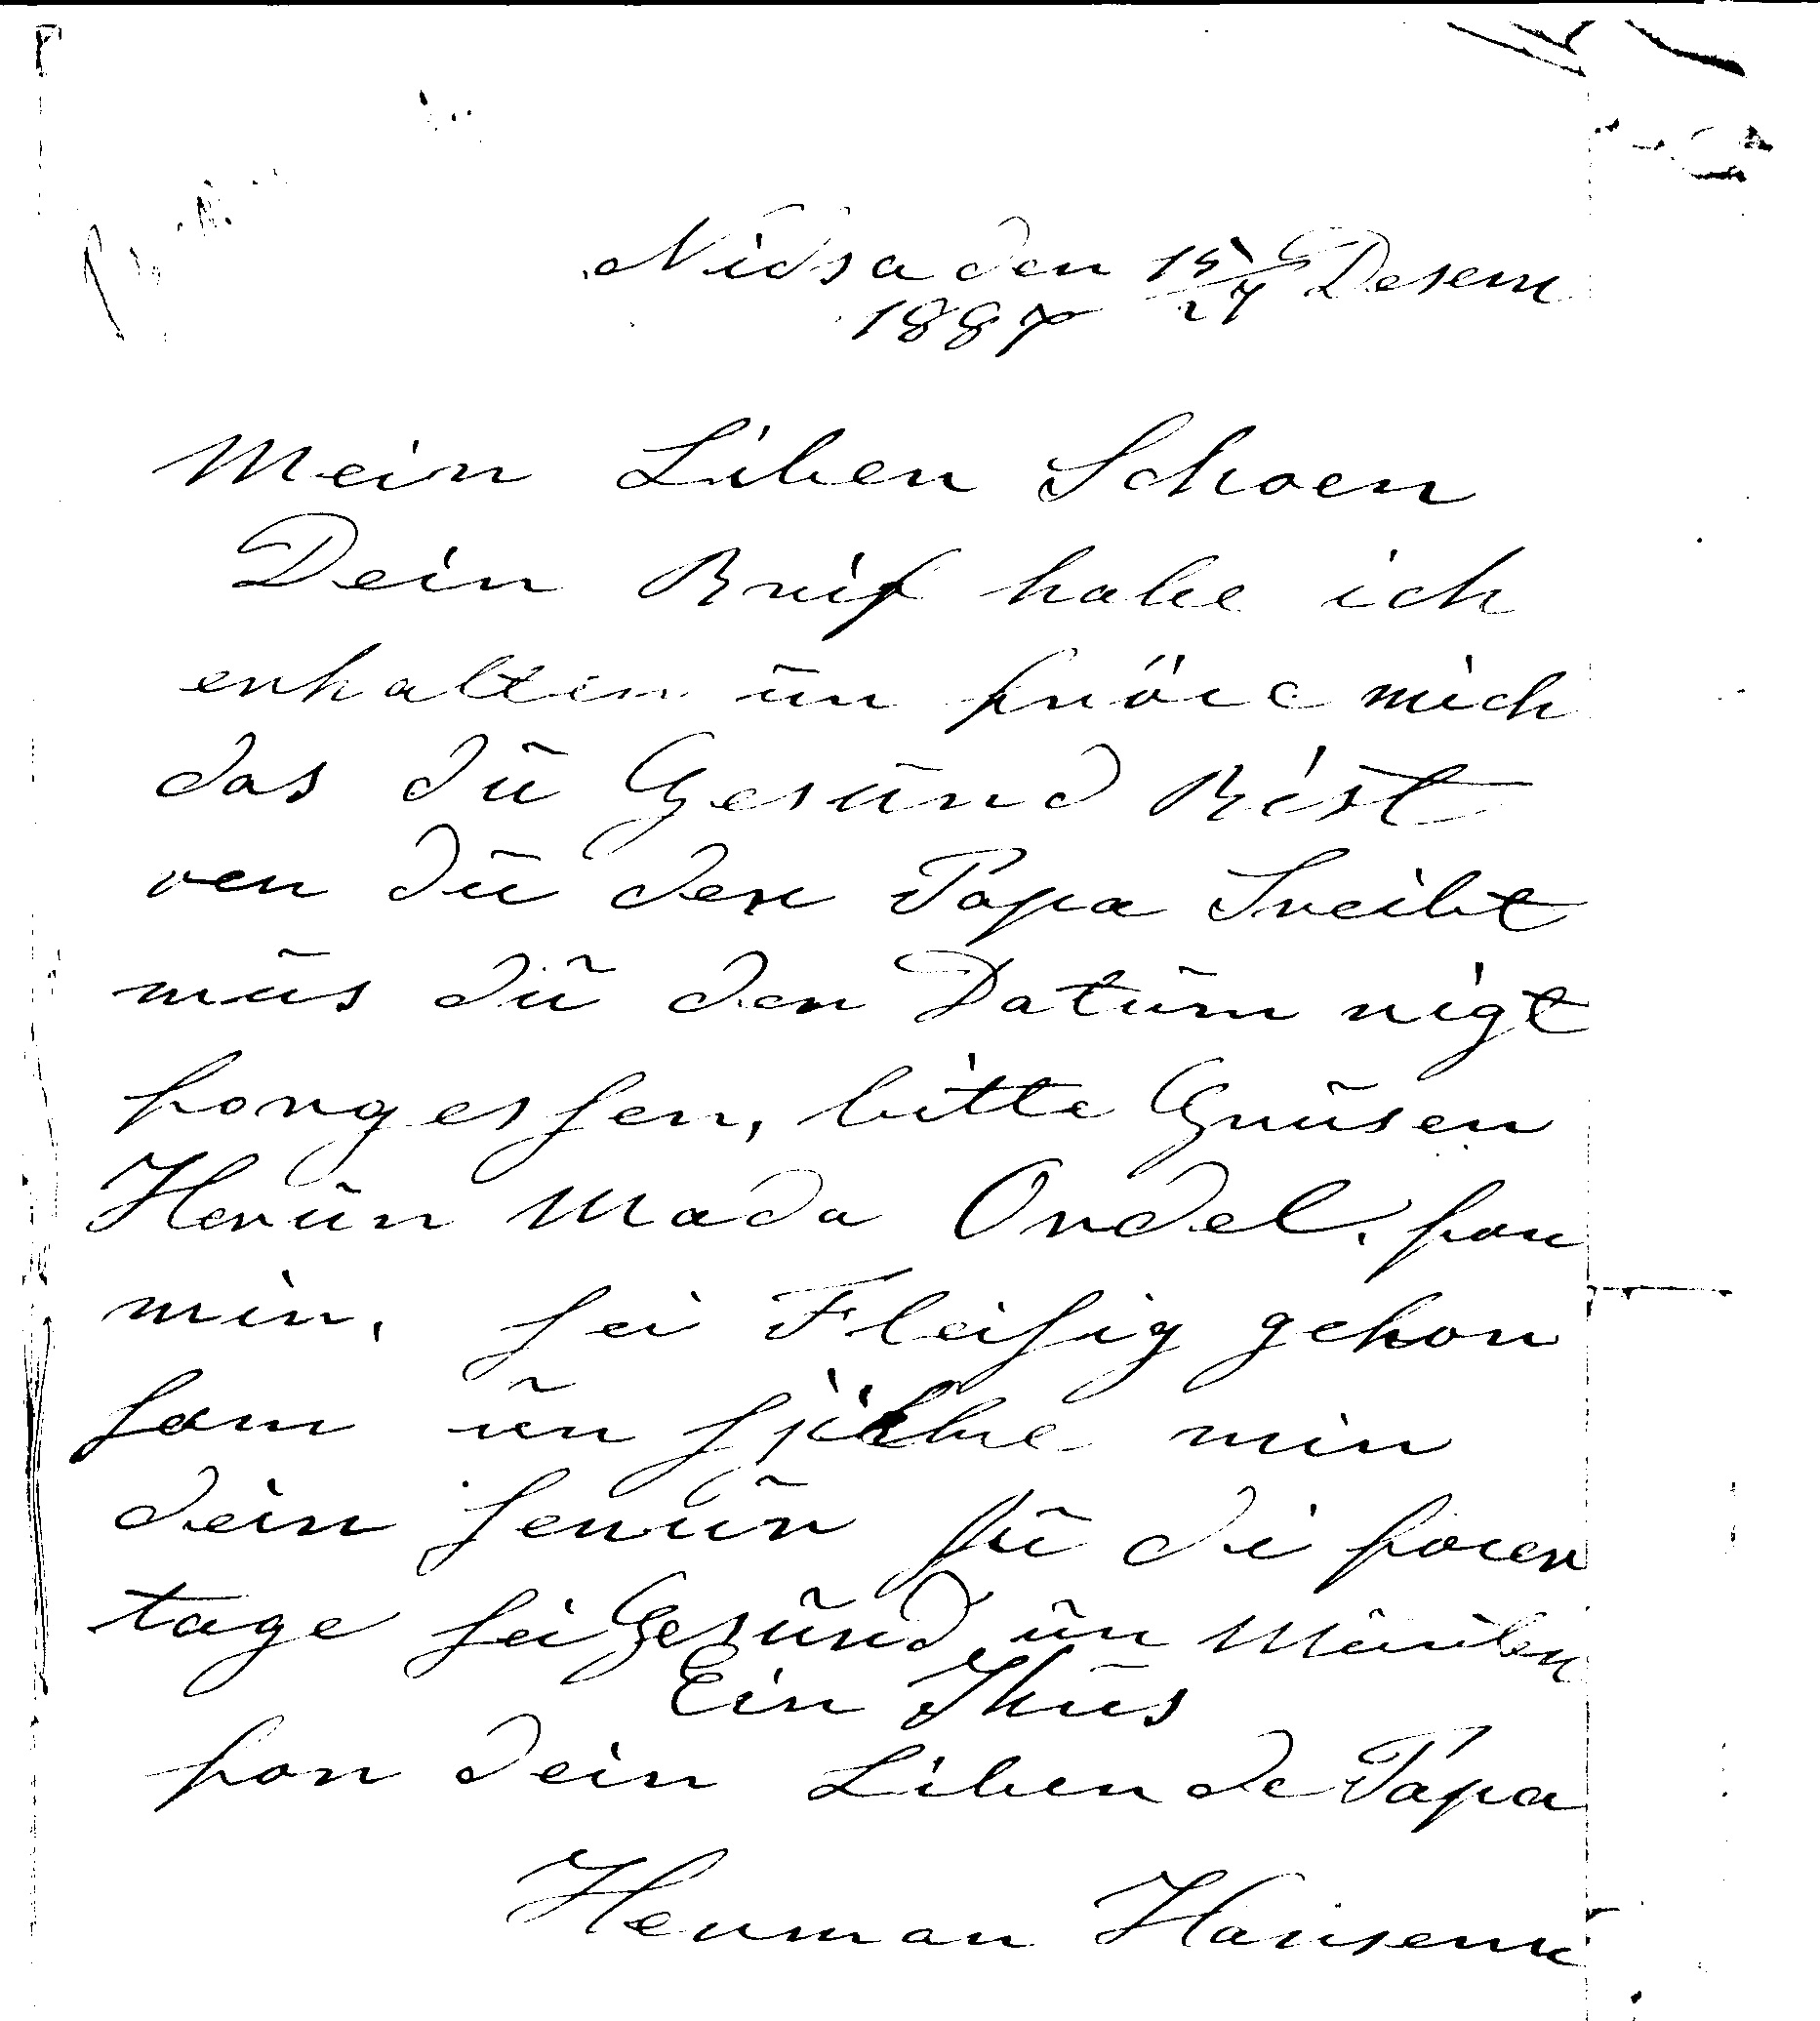 Nidsa den 15/27 Desem
1887
Mein Liben Schoen
Dein Brif habe ich
erhalten ūn fröie mich
das dū Gesūnd Bist
ven dū den Papa Sreibt
mūs dū den Datūm nigt
forgessen, bitte Grūsen
Her ūn Mada Ordel. fon
mir. sei Fleisig gehor
sam ūn
dein fū di foier
tage sei Gesūnd ūn
Ein Khūs
fon dein Libende Papa
Herman